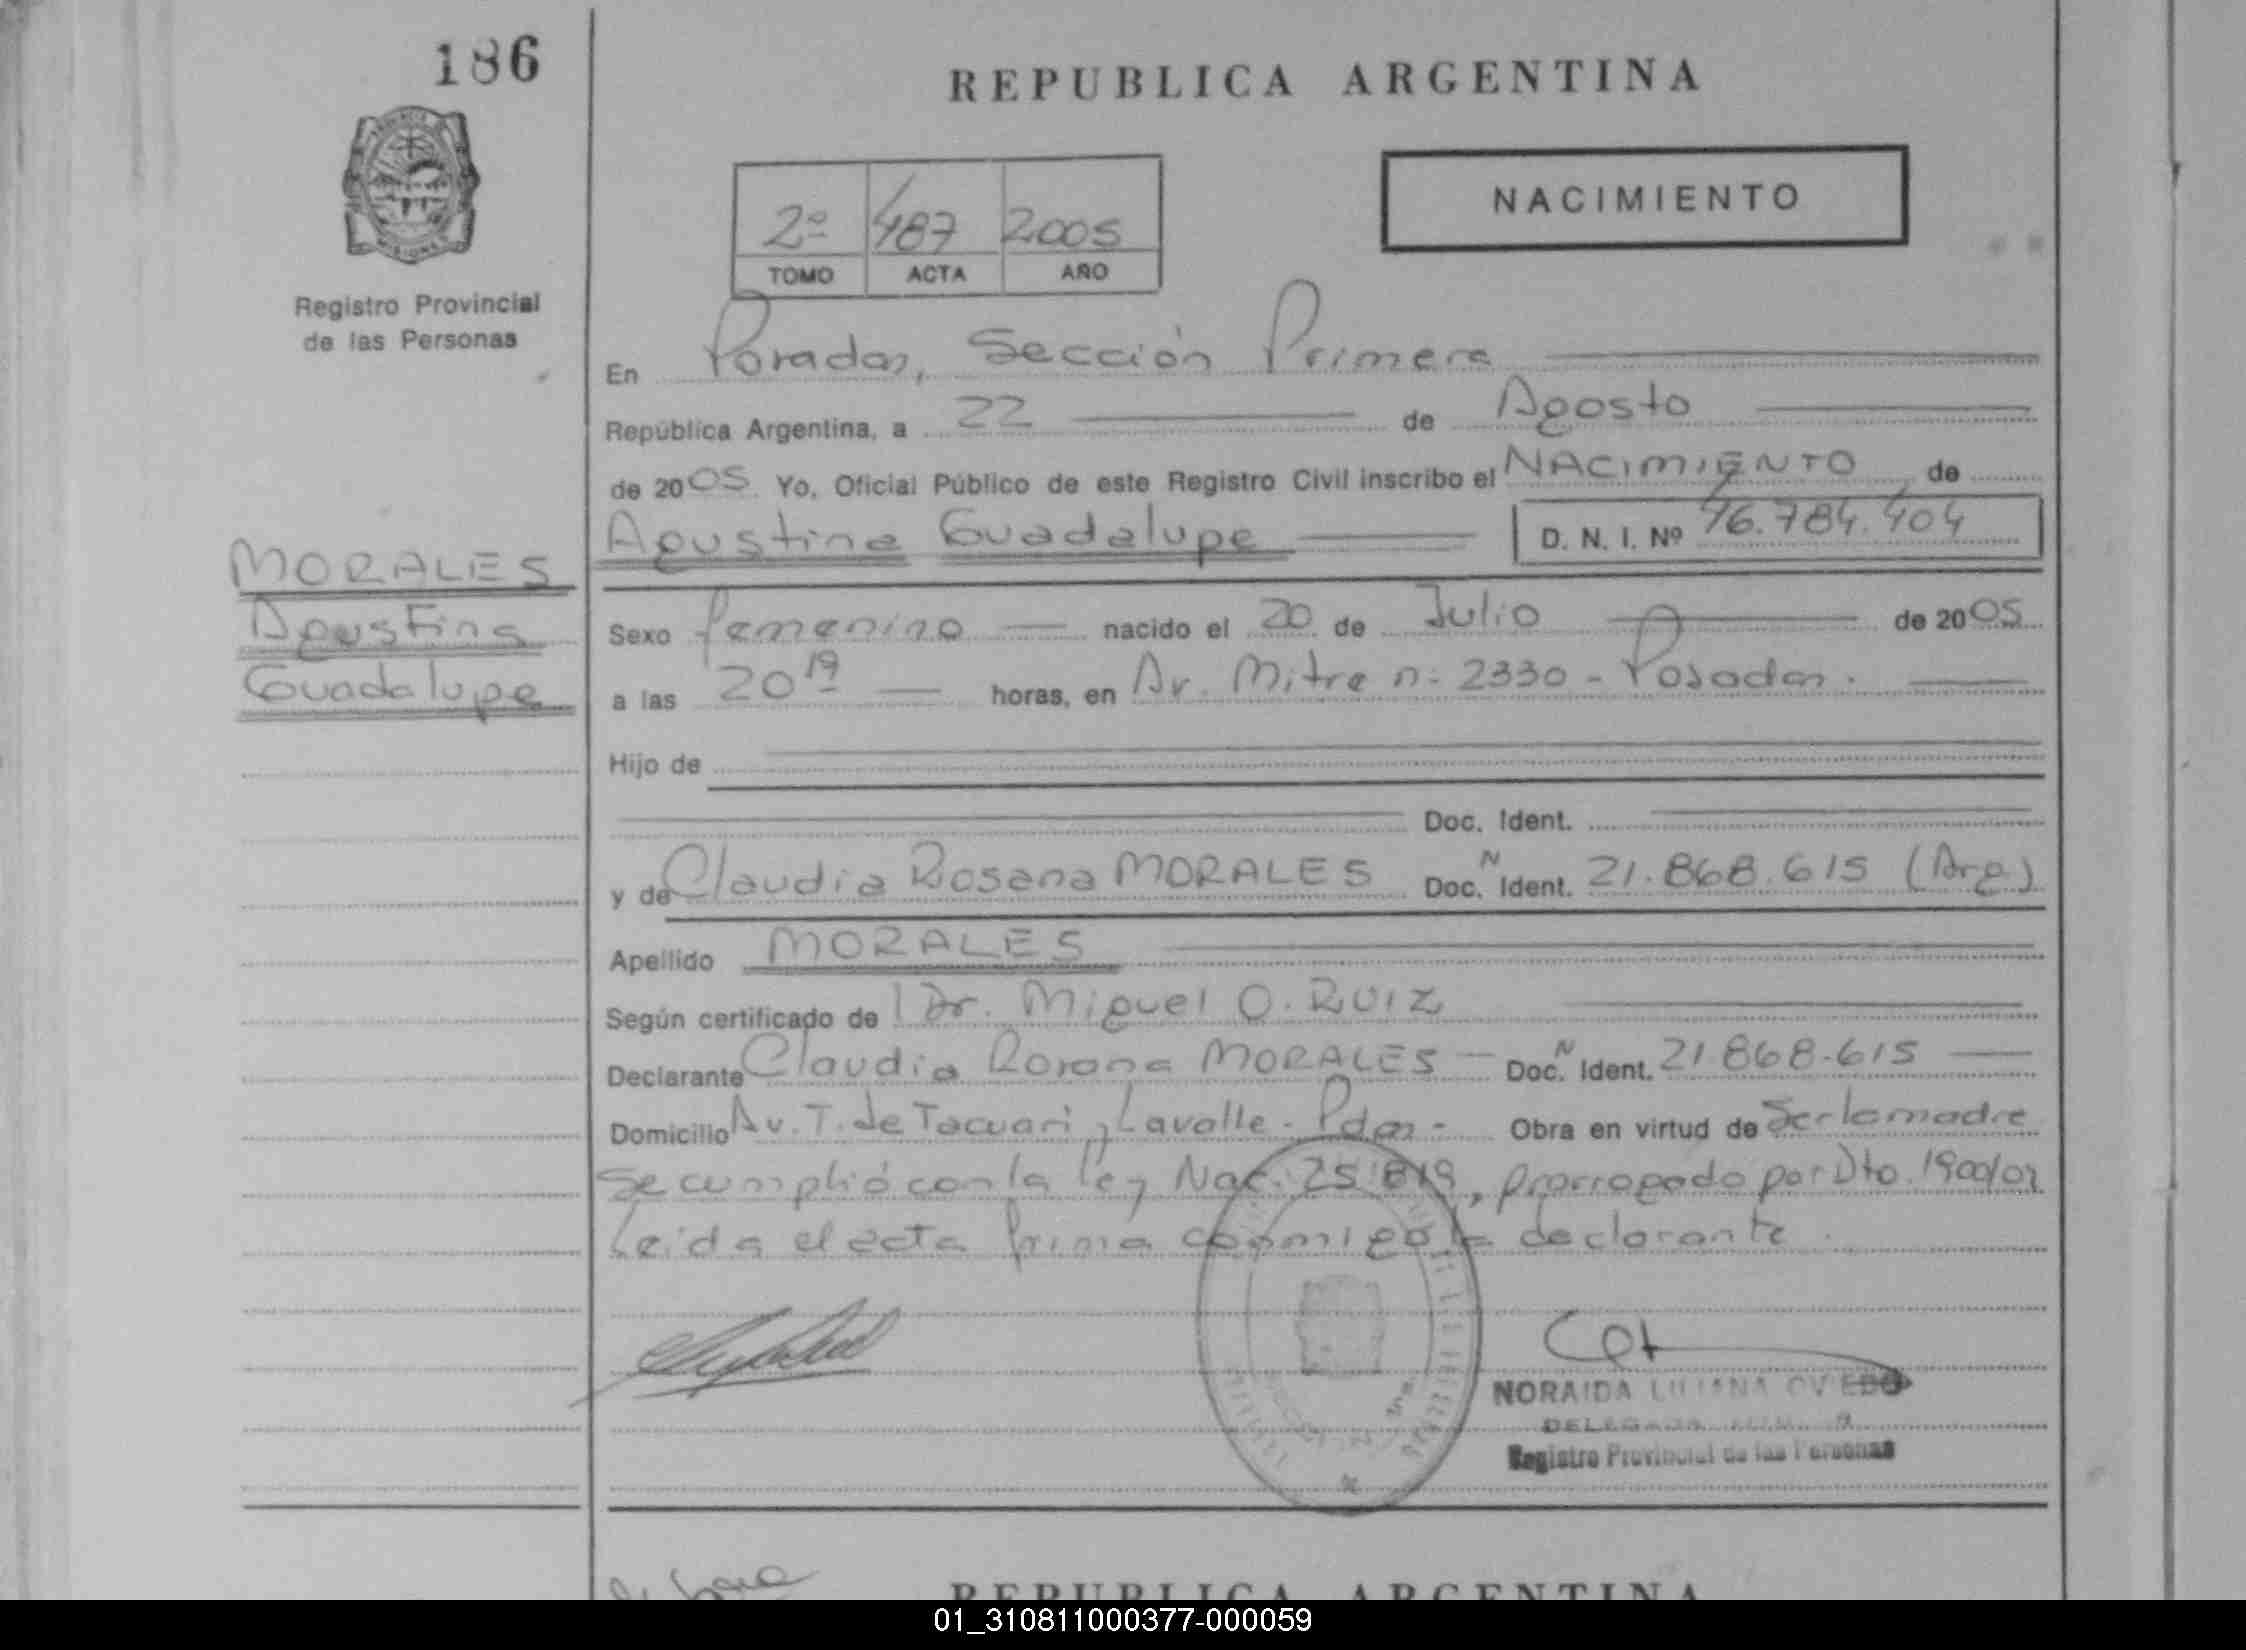 186
REPUBLICA ARGENTINA
NACIMIENTO
2º 487 2005
TOMO ACTA AÑO
Registro Provincial
de las Personas
En Posadas, Sección Primera
República Argentina, a 22 de Agosto
de 2005. Yo, Oficial Público de este Registro Civil inscribo el NACIMIENTO de
Agustina Guadalupe D. N. I. Nº 46.784.404
MORALES
Agustina
Guadalupe
Sexo femenino nacido el 20 de Julio de 2005
a las 20 19 horas, en Av. Mitre n: 2330 - Posadas.
Hijo de
Doc. Ident.
y de Claudia Rosana MORALES Doc. N Ident. 21.868.615 (Arg.)
Apellido MORALES
Según certificado de Dr. Miguel O. RUIZ
Declarante Claudia Rosana MORALES Doc. N Ident. 21.868.615
Domicilio Av. T. de Tacuari y Lavalle - Pdas - Obra en virtud de Ser la madre
Se cumplió con la ley Nac. 25.819, prorrogado por Dto. 1900/02
Leida el acta firma conmigo la declarante.
NORAIDA LILIANA OVIEDO
DELEGADA
Registro Provincial de las Personas
REPUBLICA ARGENTINA
01_310811000377-000059